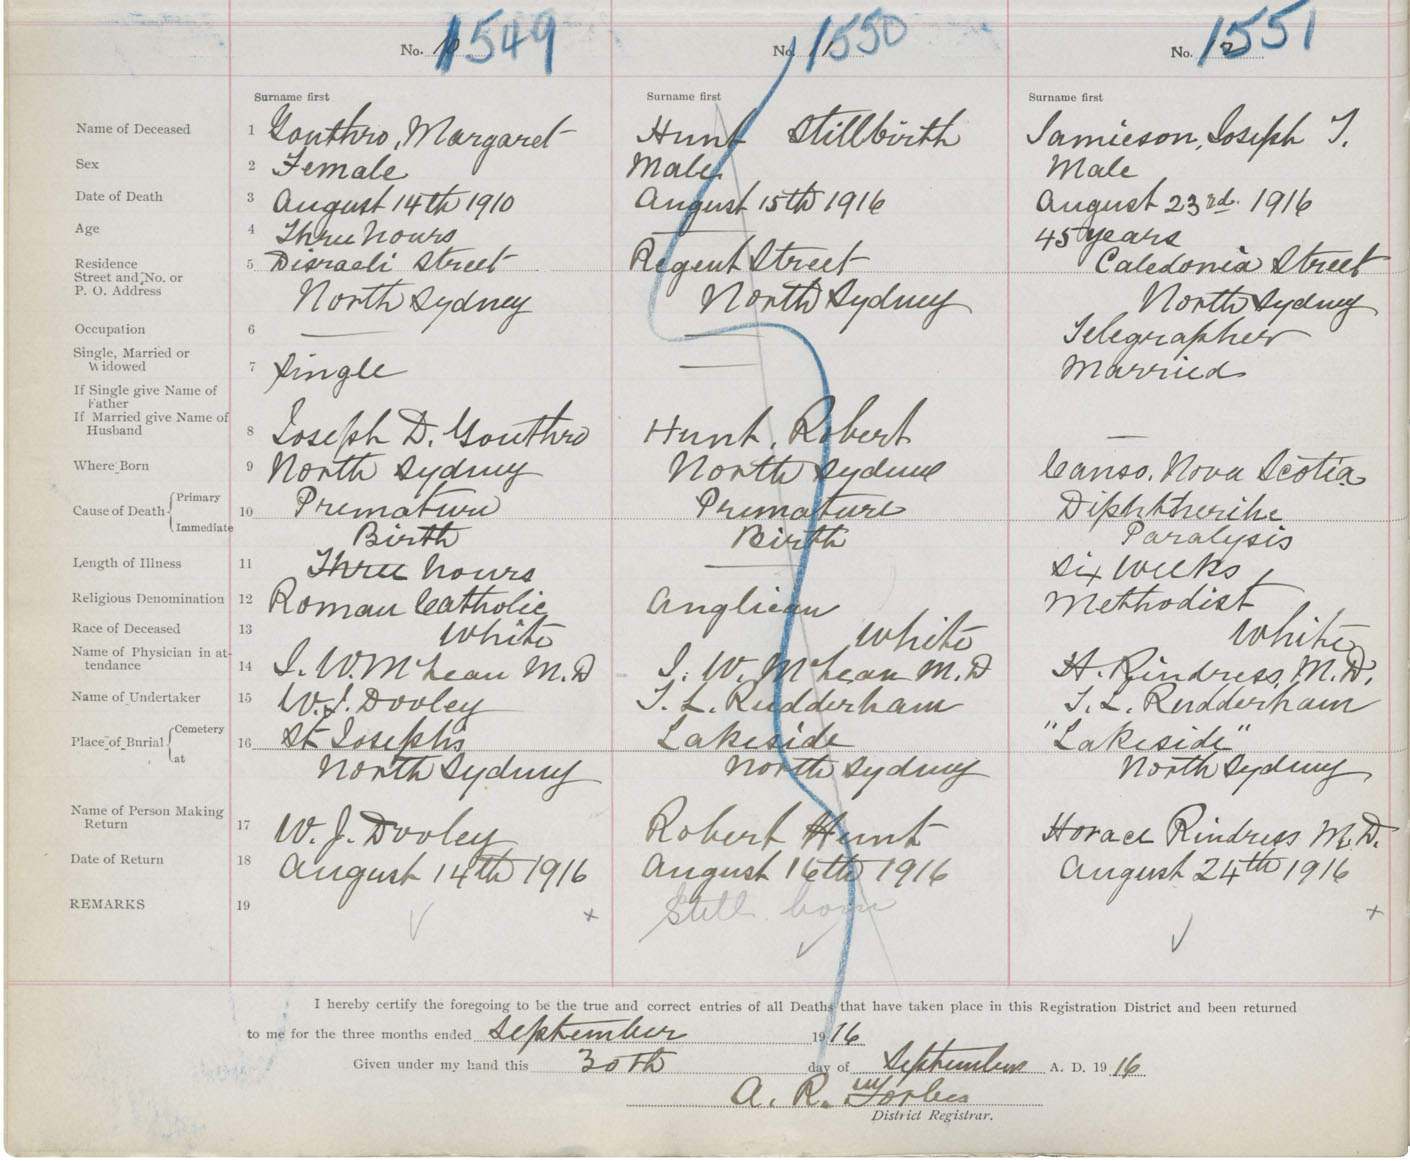 No. 1549
No. 1550
No. 1551
Surname first Surname first Surname first
Name of Deceased 1 Gouthro, Margaret Hunt Stillbirth Jamieson, Joseph T.
Sex 2 Female Male Male
Date of Death 3 August 14th 1910 August 15th 1916 August 23rd. 1916
Age 4 Three hours — 45 years
Residence 5 Disraeli Street Regent Street Caledonia Street
Street and No. or
P. O. Address North Sydney North Sydney North Sydney
Occupation 6 — — Telegrapher
Single, Married or
Widowed 7 Single — Married
If Single give Name of
Father
If Married give Name of
Husband 8 Joseph D. Gouthro Hunt, Robert —
Where Born 9 North Sydney North Sydney Canso, Nova Scotia
Cause of Death { Primary 10 Premature Premature Diphtheritic
Immediate Birth Birth Paralysis
Length of Illness 11 Three hours — Six weeks
Religious Denomination 12 Roman Catholic Anglican Methodist
Race of Deceased 13 White White White
Name of Physician in at-
tendance 14 J. W. McLean M.D J. W. McLean M.D H. Rindress, M.D.
Name of Undertaker 15 W. J. Dooley T. L. Rudderham T. L. Rudderham
Place of Burial { Cemetery 16 St Josephs Lakeside "Lakeside"
at North Sydney North Sydney North Sydney
Name of Person Making
Return 17 W. J. Dooley Robert Hunt Horace Rindress M.D.
Date of Return 18 August 14th 1916 August 16th 1916 August 24th 1916
REMARKS 19 Still born
I hereby certify the foregoing to be the true and correct entries of all Deaths that have taken place in this Registration District and been returned
to me for the three months ended September 1916
Given under my hand this 30th day of September A. D. 1916
A. R. Forbes
District Registrar.